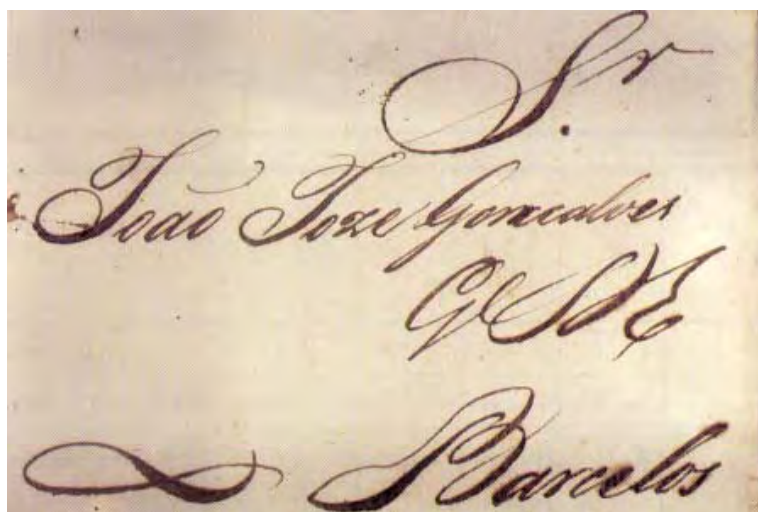 Sr.
João Joze Gonçalves
Barcelos